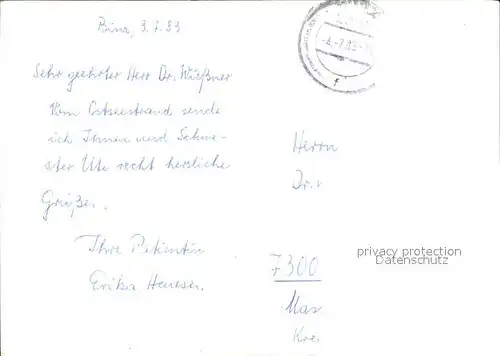 Binz, 3.7.83
Sehr geehrter Herr Dr. Wießner
Vom Ostseestrand sende
ich Ihnen und Schwe-
ster Ute recht herzliche
Grüße.
Ihre Patientin
Erika
Herrn
Dr.
7300
Kre
-4.-7.83
f
privacy protection
Datenschutz